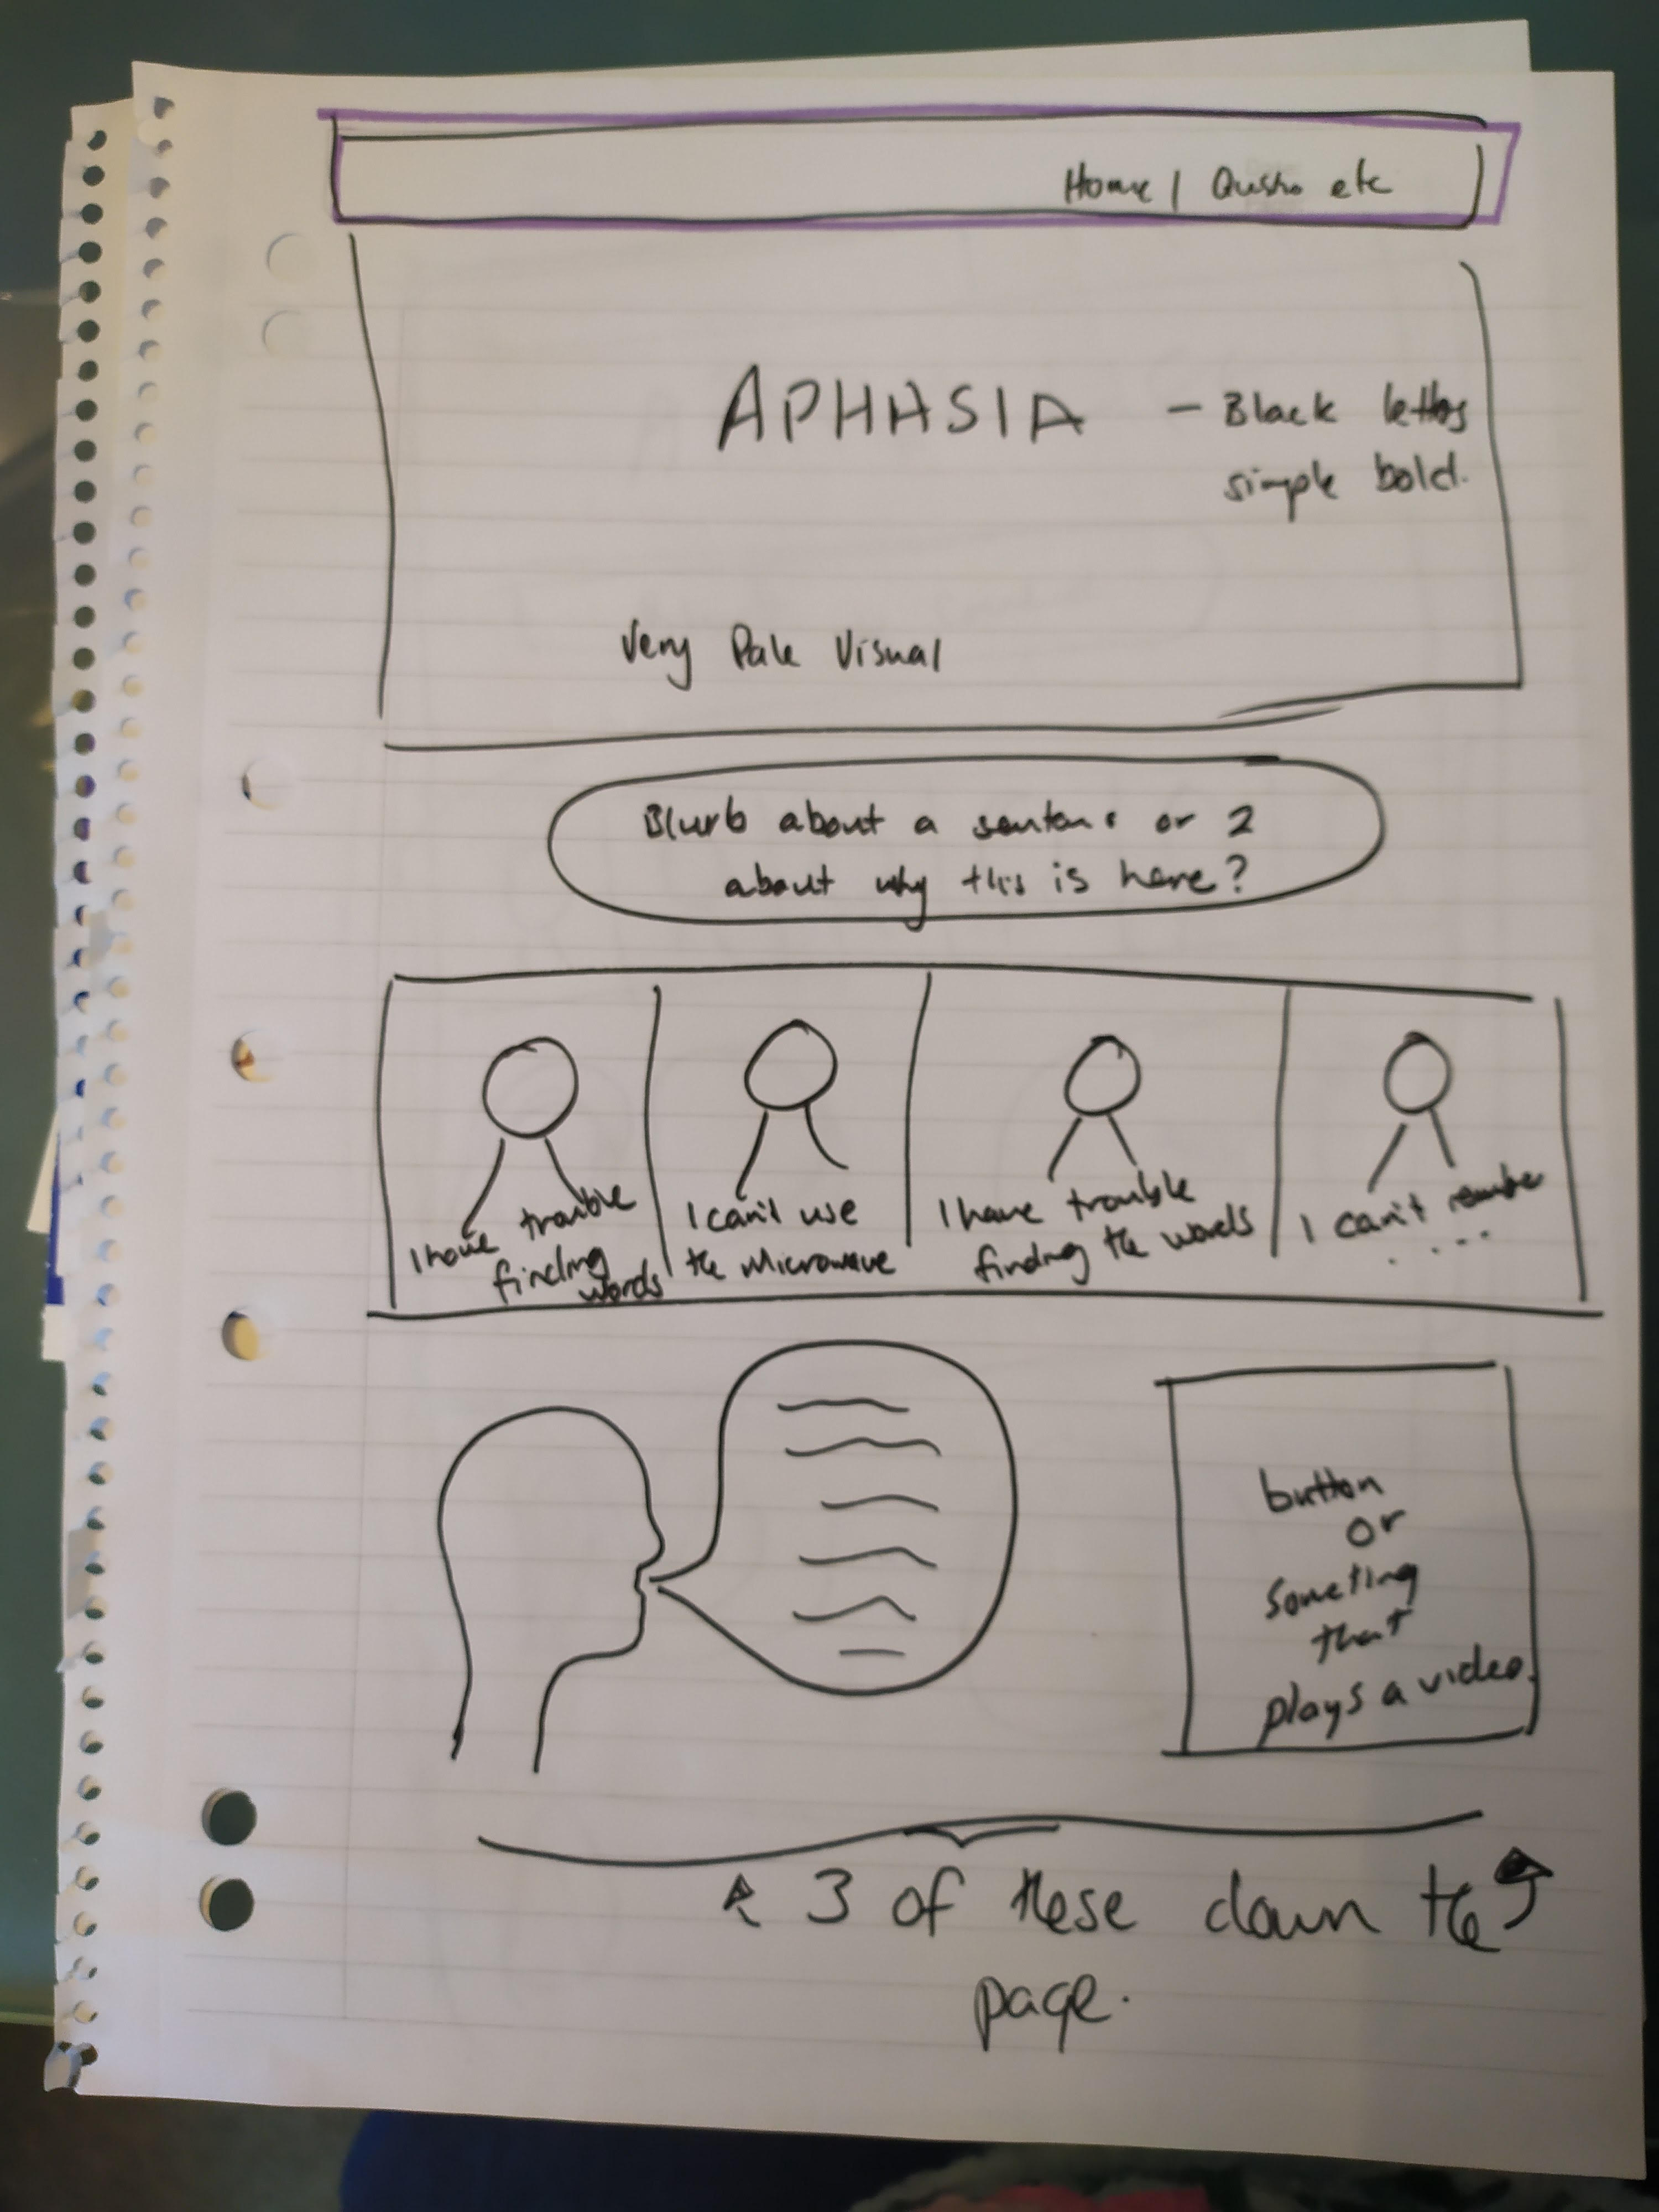 Home | etc
APHASIA - Black letters
simple bold.
Very Pale Visual
Blurb about a sentence or 2
about why this is here?
I have trouble
finding
words
I can't use
the Microwave
I have trouble
finding the words
I can't remember
. . . .
button
or
someting
that
plays a video.
3 of these down the
page.